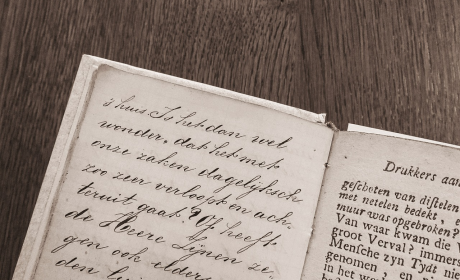 's huis. Is het dan wel
wonder, dat het met
onze zaken dagelyksch
zoo zeer verloopt en ach-
teruit gaat? Of heeft
de Heere Zynen ze-
gen ook elders
den
Drukkers aan
geschoten van distelen
met netelen bedekt, e
muur was opgebroken?
Van waar kwam die V
groot Verval? immers
Mensche zyn Tyd me
genomen, en
in het wo